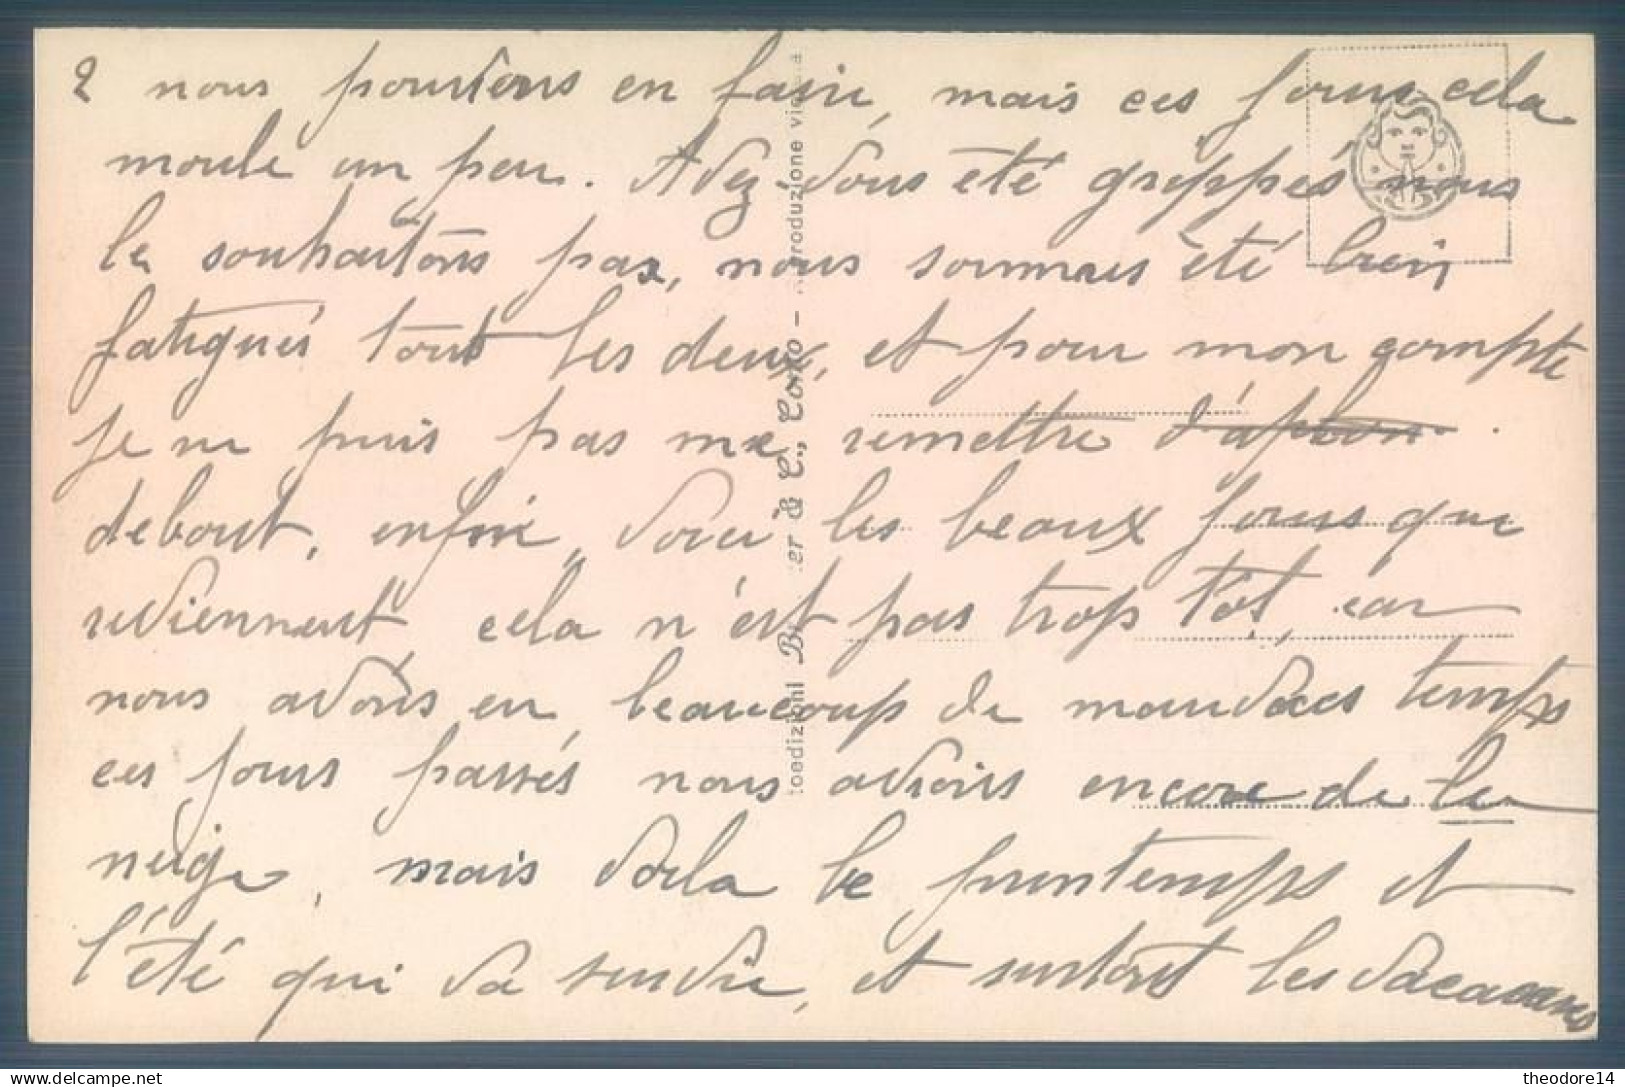 2 nous pouvions en faire, mais ces jours cela
moule un peu. Avez-vous été grippés nous
le souhaitons pas, nous sommes été bien
fatigués tout les deux, et pour mon compte
je ne puis pas me remettre d'aplon
debout, enfin, voici les beaux jours qui
reviennent cela n'est pas trop tôt, car
nous avons eu beaucoup de mauvaises temps
ces jours passés nous avions encore de la
neige, mais voila le printemps et
l'été qui va suivre, et surtout les vacances
oedizioni er & C., Como - roduzione vie
theodore14